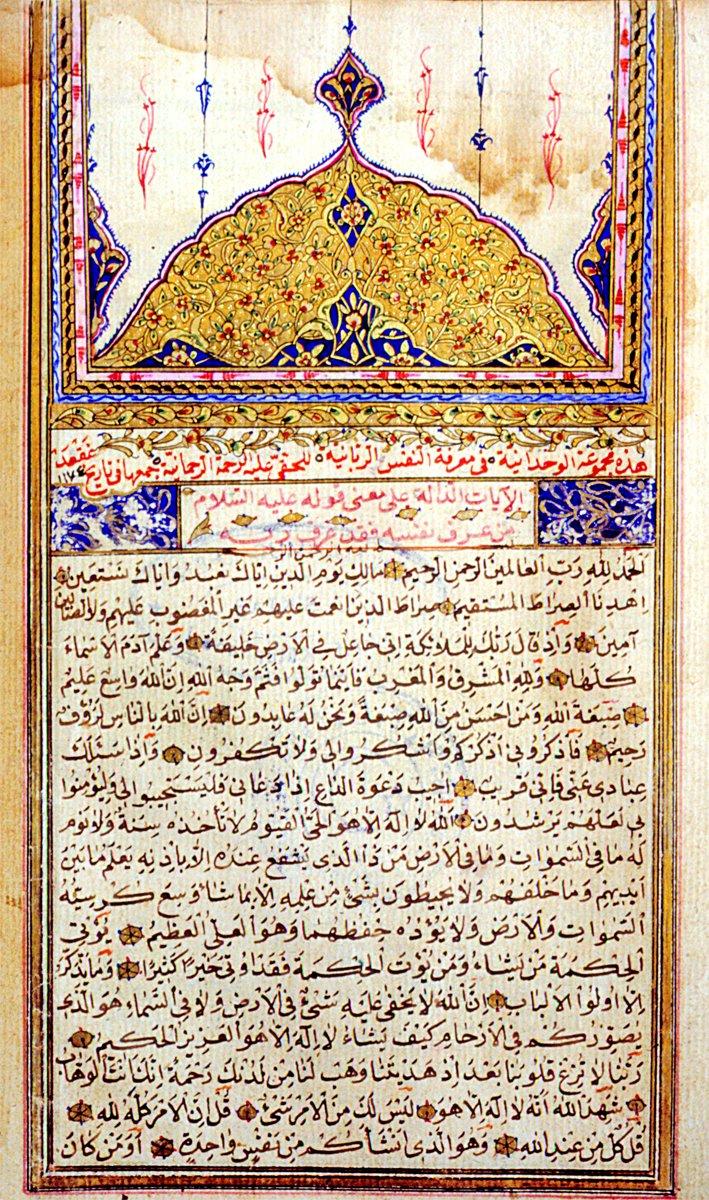 هذه مجموعة الوحدانية في معرفة النفس الربانية للحقي عليه الرحمة الرحمانية جمعها في تاريخ
١١٧٤
الآيات الدالة على معنى قوله عليه السلام
من عرف نفسه فقد عرف ربه
الحمد لله رب العالمين الرحمن الرحيم مالك يوم الدين اياك نعبد واياك نستعين
اهدنا الصراط المستقيم صراط الذين انعمت عليهم غير المغضوب عليهم ولا الضالين
آمين واذ قال ربك للملائكة اني جاعل في الارض خليفة وعلم آدم الاسماء
كلها ولله المشرق والمغرب فاينما تولوا فثم وجه الله ان الله واسع عليم
صبغة الله ومن احسن من الله صبغة ونحن له عابدون ان الله بالناس لرؤف
رحيم فاذكروني اذكركم واشكروا لي ولا تكفرون واذا سئلك
عبادي عني فاني قريب اجيب دعوة الداع اذا دعاني فليستجيبوا لي وليؤمنوا
بي لعلهم يرشدون الله لا اله الا هو الحي القيوم لا تأخذه سنة ولا نوم
له ما في السموات وما في الارض من ذا الذي يشفع عنده الا باذنه يعلم ما بين
ايديهم وما خلفهم ولا يحيطون بشئ من علمه الا بما شاء وسع كرسيه
السموات والارض ولا يؤده حفظهما وهو العلي العظيم يؤتي
الحكمة من يشاء ومن يؤت الحكمة فقد اوتي خيرا كثيرا وما يذكر
الا اولوا الالباب ان الله لا يخفى عليه شئ في الارض ولا في السماء هو الذي
يصوركم في الارحام كيف يشاء لا اله الا هو العزيز الحكيم
ربنا لا تزغ قلوبنا بعد اذ هديتنا وهب لنا من لدنك رحمة انك انت الوهاب
شهد الله انه لا اله الا هو ليس لك من الامر شئ قل ان الامر كله لله
قل كل من عند الله وهو الذي انشأكم من نفس واحدة او من كان